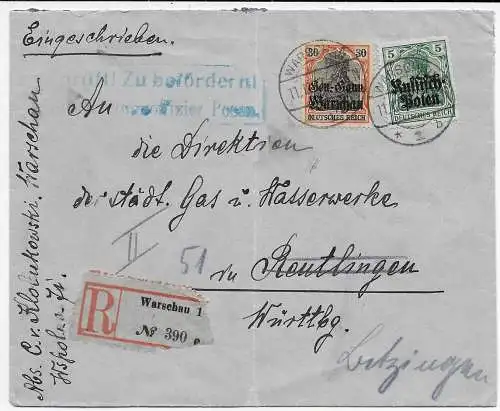 Eingeschrieben.
Zu befördern!
Posen.
30 30
Gen.-Gouv.
Warschau
DEUTSCHES REICH
WARSCHAU
5 5
Russisch-
Polen
DEUTSCHES REICH
WARSCHAU
An
die Direktion
der städt. Gas u. Wasserwerke
in Reutlingen
Württbg.
II
51
Betzingen
R
Warschau 1
№ 390
Abs. C. v. Warschau